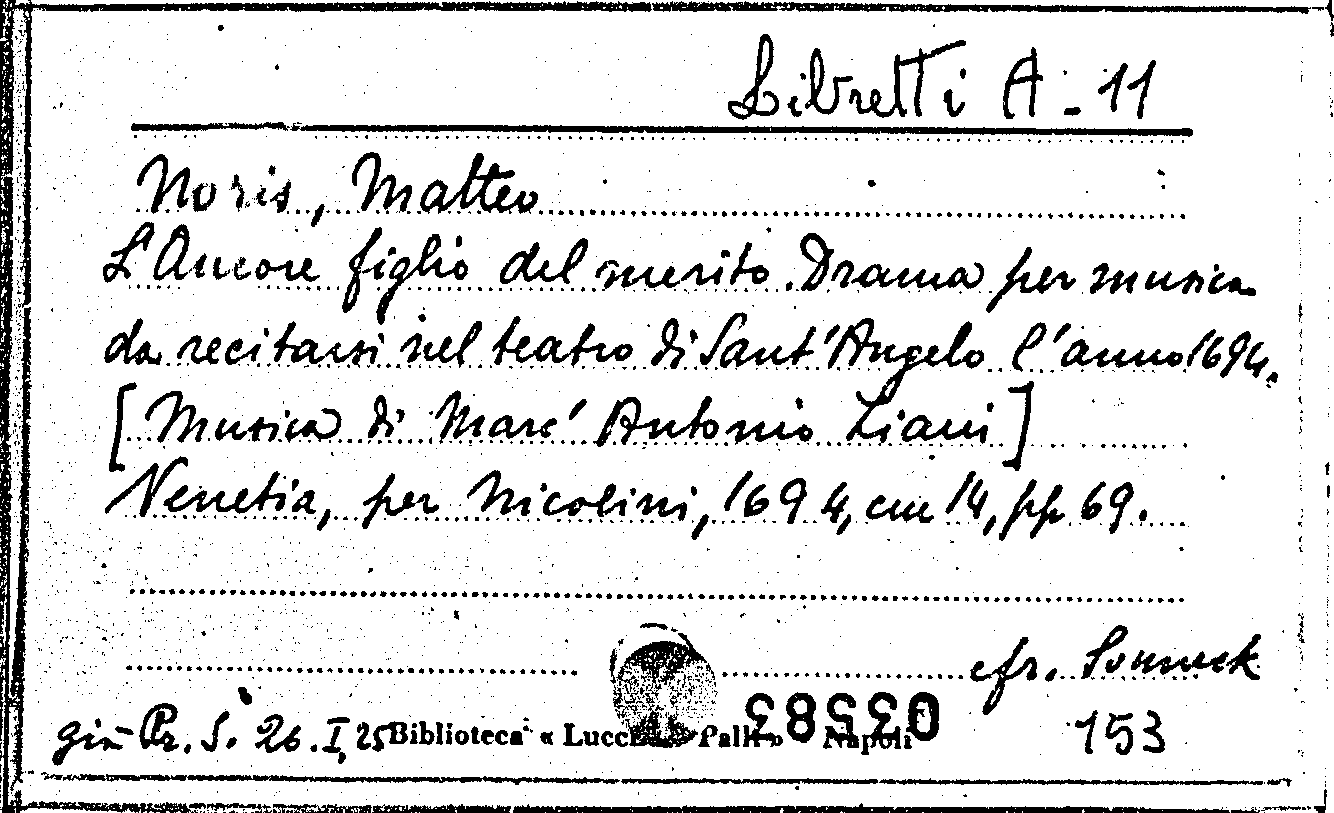 Libretti A - 11
Noris, Matteo
L'Amore figlio del merito. Drama per musica
da recitarsi nel teatro di Sant'Angelo l'anno 1694.
[Musica di Marc' Antonio Ziani]
Venetia, per Nicolini, 1694, cm 14, pp 69.
cfr. Sonneck
153
già Pr. S. 26. I, 25
Biblioteca « Lucchesi Palli » Napoli